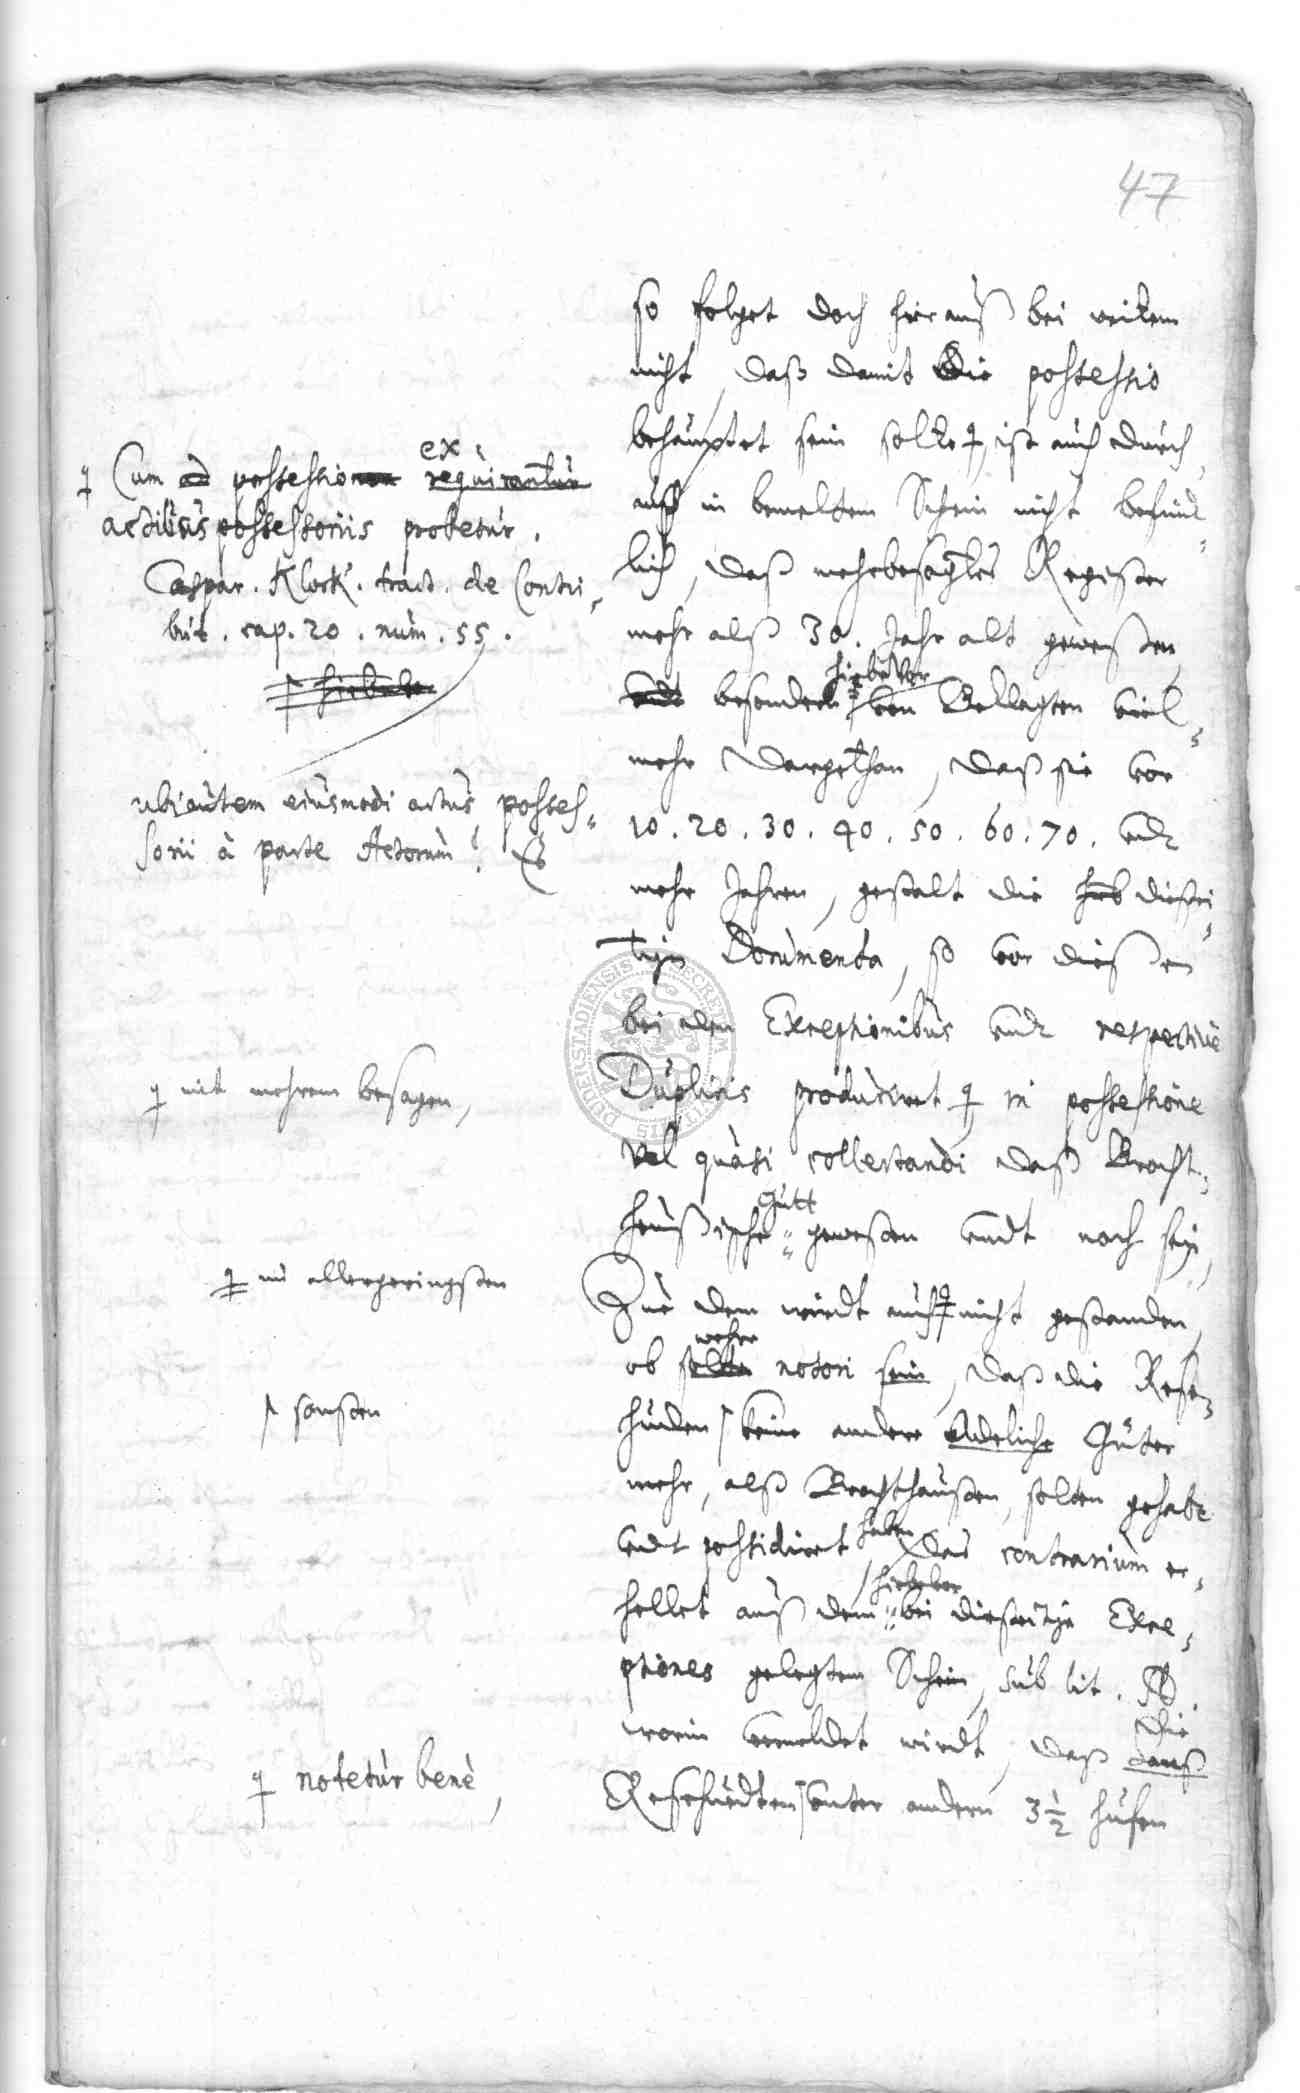 47
so folget doch hierauß bei weitem
nicht, daß damit die possessio
behauptet sein solte, ist auch durch¬
auß in bemeltem Schein nicht befind¬
lich, daß mehrbesagtes Register
mehr alß 30. Jahr alt geweßen,
undt besondern hiebevor von Beklagten viel¬
mehr dargethan, daß sie vor
10. 20. 30. 40. 50. 60. 70. undt
mehr Jahren, gestalt die dießei¬
tige Documenta, so vor dießen
bei den Exceptionibus undt respectivè
Duplicis produciret in possessione
vel quasi collectandi daß Brocht¬
haußische Gutt geweßen undt noch sein,
Zue dem wirdt auch nicht gestanden,
ob solte wehre notori sein, daß die Rese¬
huden keine andere Adeliche Güter
mehr, alß Brochthaußen, solten gehabt
undt possidiret haben, das contrarium er¬
hellet auß dem hiebevor bei dießeitige Exce¬
ptiones gelegtem Schein, sub lit.
worin vermeldet wirdt, daß die
Resehuedten unter andern 3 1/2 hufen
Cum possessio ex requirantur
actibus possessoriis probetur.
Caspar. Klock. tract. de Contri¬
but. cap. 20. num. 55.
hiebevor
ubi autem eiusmodi actus posses¬
sorii à parte Actorum?
mit mehrem besagen,
im allergeringsten
sonsten
notetur benè,
SECRETUM CIVITATIS DUDERSTADIENSIS